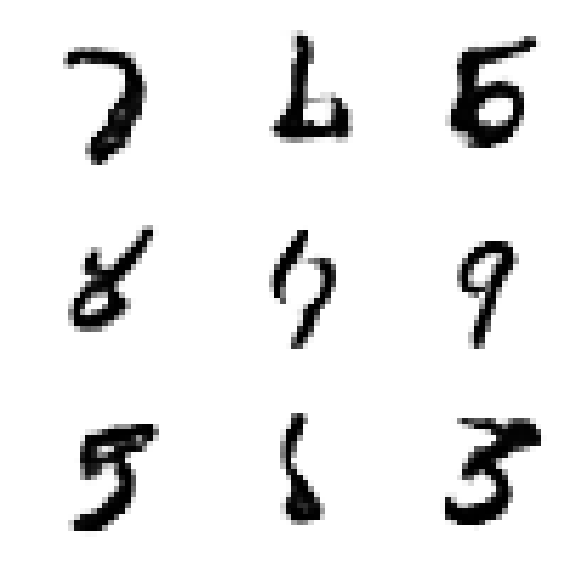 7 6 5
8 9 9
5 6 3